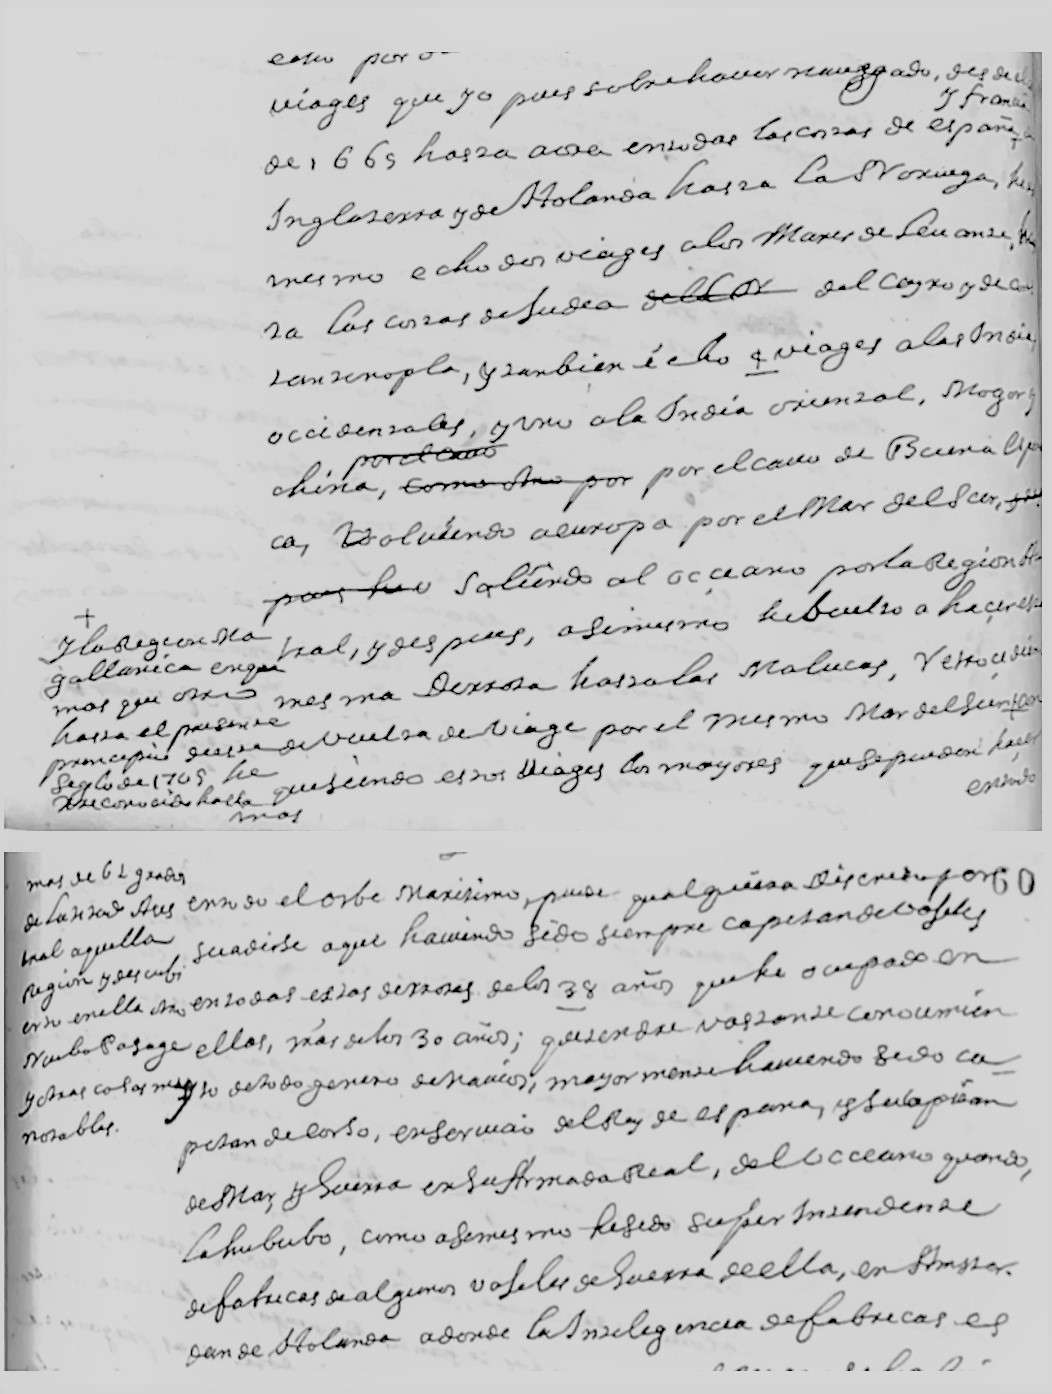 viages que yo pues sobre haver navegado, desde el
y francia
de 1665 hasta aora en todas las costas de españa
Inglaterra y de Holanda hasta la Noruega, he
mesmo echo dos viages a los Mares de Levante,
ta las costas de Judea del Cayro y de Co
tantinopla, y tanbien é cho 4 viages a las Indias
occidentales, y uno a la India oriental, Mogor y
por el cavo
china, como otro por por el cavo de Buena Espe
ca, Volviendo a europa por el Mar del Sur,
pues he Saliendo al occeano por la Region Ma
+
tral, y despues, asimismo he buelto a haçer esta
mesma Derrota hasta las Malucas, Retrocedien
de Vuelta de Viage por el mesmo Mar del Sur
que siendo estos Viages los mayores que se pueden haçer
en todo
y la Region Ma
gallanica en que
mas que otro
hasta el presente
principio deste
Siglo de 1705 he
Reconocido hasta
mas
60
mas de 62 grados
de latitud Aus
tral aquella
Region y descubi
erto en ella otro
Nuebo Pasage
y otras cosas mas
notables.
en todo el orbe Maritimo, puede qualquiera Discreto per
suadirse a que haviendo sido siempre capitan de Vaseles
en todas estas derrotas de los 38 años que he ocupado en
ellas, más de los 30 años; que tendre vastante conocimien
to de todo genero de navios, mayormente haviendo sido ca
pitan de Corso, en servicio del Rey de espana, y su capitan
de Mar, y Guerra en su Armada Real, del occeano quando,
la hububo, como asemesmo he sido super Intendente
de fabricas de algunos vaseles de Guerra de ella, en Amster.
dan de Holanda adonde la Inteligencia de fabricas es